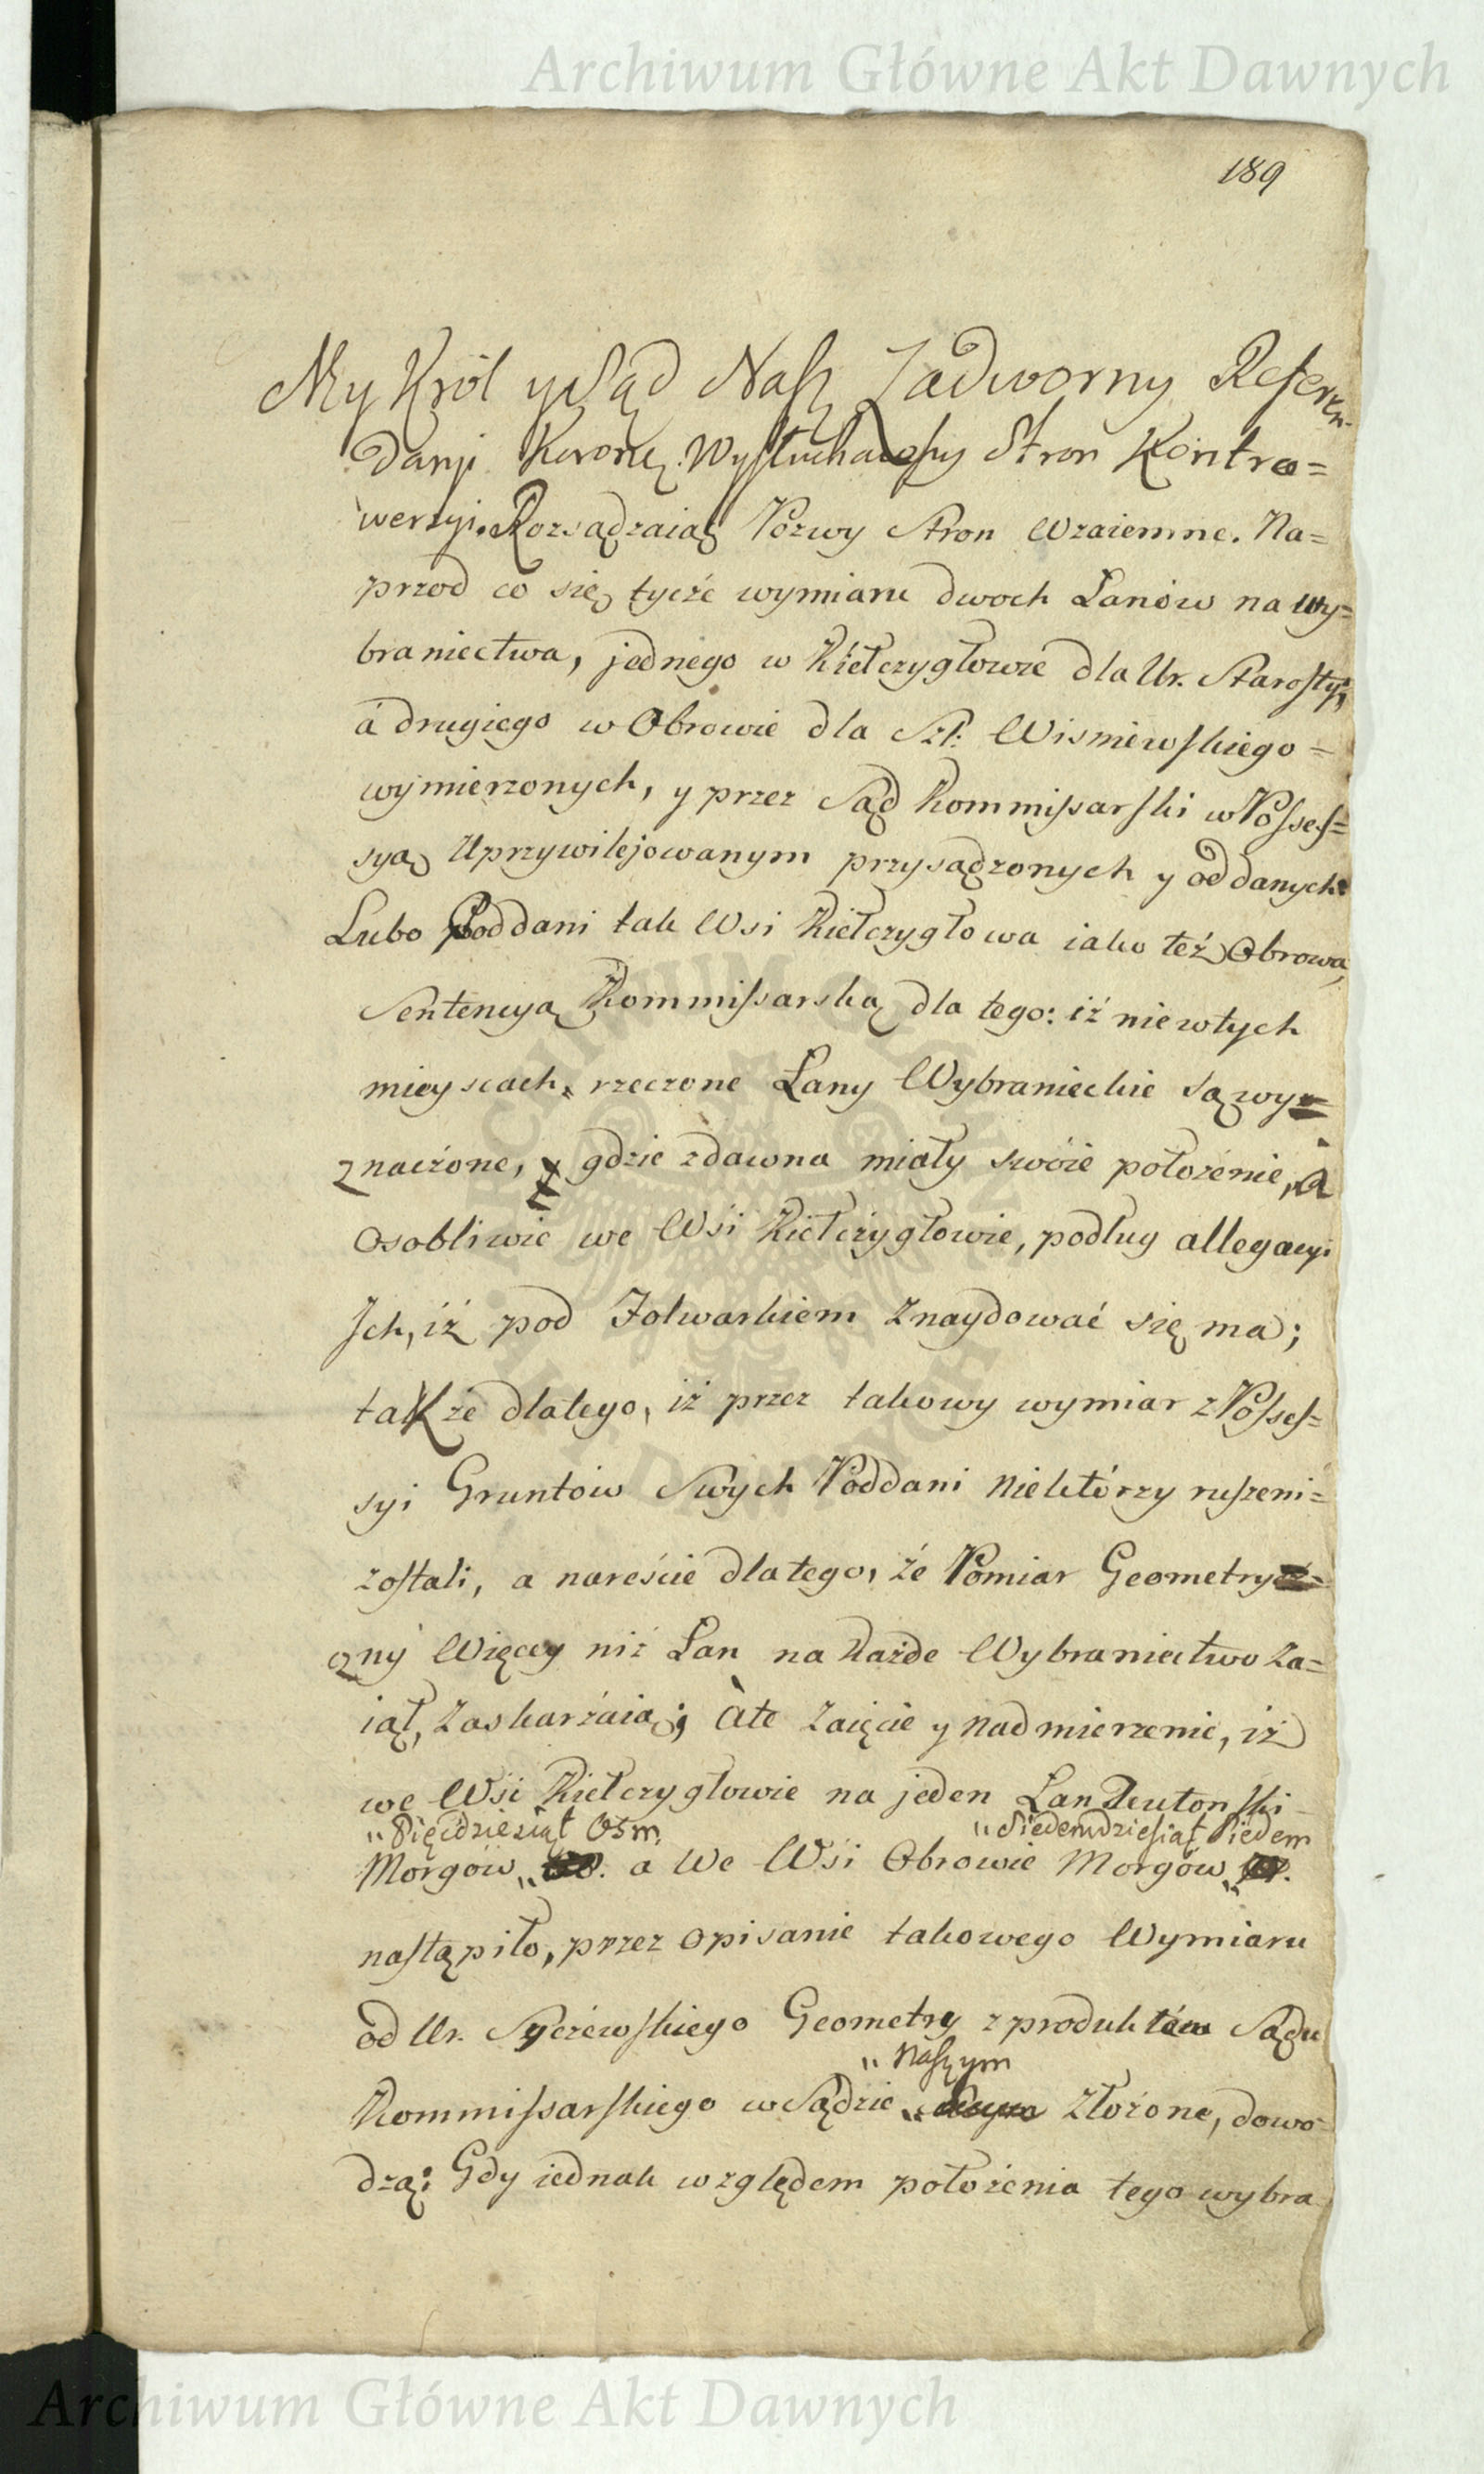 Archiwum Główne Akt Dawnych
189
My Król y Sąd Nasz Zadworny Referen-
darji Koronę. Wysłuchawszy Stron Kontro=
wersyi. Rozsądzaiąc Pozwy Stron Wzaiemne. Na=
przod co się tycźe wymiaru dwoch Łanów na wy=
braniectwa, jednego w Kiełczygłowie dla Ur. Starosty,
á drugiego w Obrowie dla Szl: Wisniewskiego =
wymierzonych, y przez Sąd Kommissarski w Posses=
syą Uprzywilejowanym przysądzonych y oddanych.
Lubo Poddani tak Wsi Kiełczygłowa iako też Obrowa,
Sentencyą Kommissarską dla tego: iż nie w tych
mieyscach, rzeczone Łany Wybranieckie są wy=
znaczone, gdzie zdawna miały swóie położenie, à
osobliwie we Wsi Kiełczygłowie, podług allegacyi
Ich, iż pod Folwarkiem Znaydować się ma;
takźe dlatego, iż przez takowy wymiar z Posses=
syi Gruntów Swych Poddani Niektórzy ruszeni=
zostali, a nareście dlatego, źe Pomiar Geometry=
czny Więcey niż Łan na każde Wybraniectwo Za=
iął, Zaskarźaią; Ate Zaięcie y Nadmierzenie, iż
we Wsi Kiełczygłowie na jeden Łan Teutoński
„Pięćdziesiąt Osm. „Siedemdziesiąt Siedem
Morgów„ a We Wsi Obrowie Morgów„
nastąpiło, przez Opisanie takowego Wymiaru
od Ur. Syczewskiego Geometry z produktów Sądu
„Naszym
Kommissarskiego w Sądzie„ Złożone, dowo-
dzą: Gdy iednak względem położenia tego wybra
Archiwum Główne Akt Dawnych